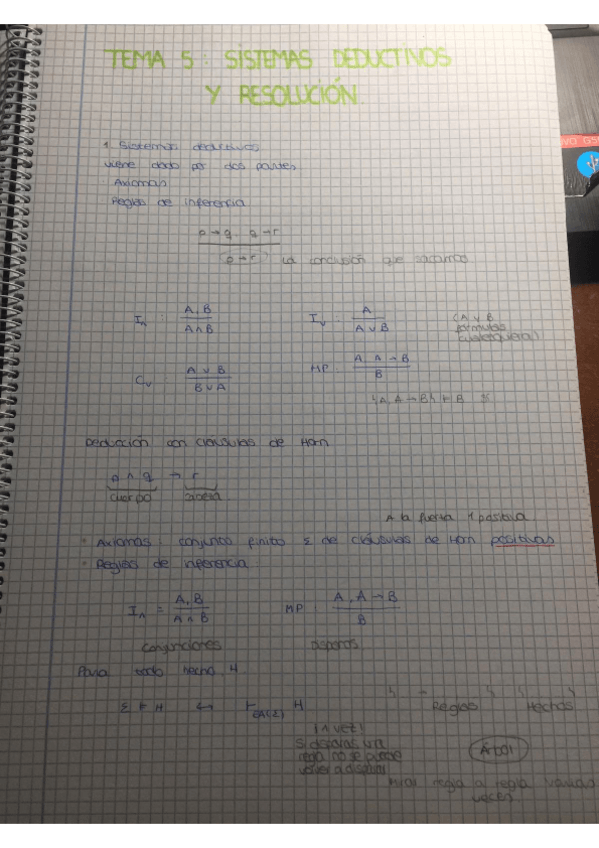 TEMA 5: SISTEMAS DEDUCTIVOS
Y RESOLUCIÓN.
1. Sistemas deductivos
viene dado por dos partes
· Axiomas
· Reglas de inferencia
p → q, q → r
p → r
la conclusión que sacamos
I∧ : A, B / A ∧ B
I∨ : A / A ∨ B
(A y B
fórmulas
cualesquiera)
C∨ : A ∨ B / B ∨ A
MP : A, A → B / B
{A, A → B} ⊢ B
Deducción con cláusulas de Horn
p ∧ q → r
cuerpo cabeza
A la fuerza 1 positiva
· Axiomas: conjunto finito Σ de cláusulas de Horn positivas
· Reglas de inferencia:
I∧ = A, B / A ∧ B
MP : A, A → B / B
conjunciones disparos
Para todo hecho H
H
Reglas Hechos
¡1 VEZ!
Si disparas una
regla no se puede
volver a disparar
Árbol
regla a regla varias
veces.